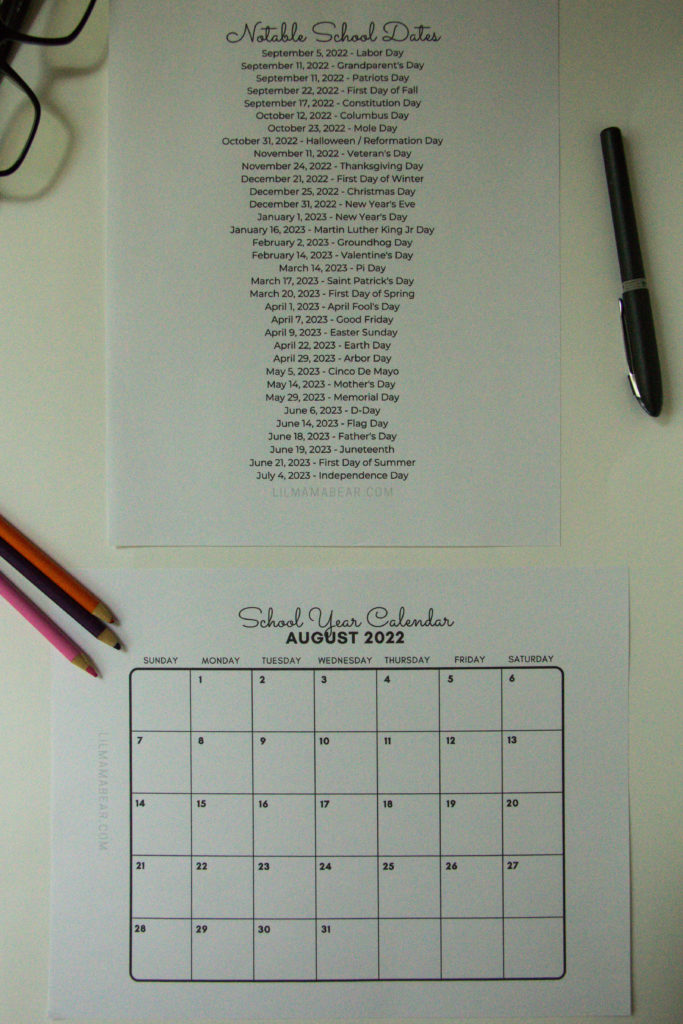 Notable School Dates
September 5, 2022 - Labor Day
September 11, 2022 - Grandparent's Day
September 11, 2022 - Patriots Day
September 22, 2022 - First Day of Fall
September 17, 2022 - Constitution Day
October 12, 2022 - Columbus Day
October 23, 2022 - Mole Day
October 31, 2022 - Halloween / Reformation Day
November 11, 2022 - Veteran's Day
November 24, 2022 - Thanksgiving Day
December 21, 2022 - First Day of Winter
December 25, 2022 - Christmas Day
December 31, 2022 - New Year's Eve
January 1, 2023 - New Year's Day
January 16, 2023 - Martin Luther King Jr Day
February 2, 2023 - Groundhog Day
February 14, 2023 - Valentine's Day
March 14, 2023 - Pi Day
March 17, 2023 - Saint Patrick's Day
March 20, 2023 - First Day of Spring
April 1, 2023 - April Fool's Day
April 7, 2023 - Good Friday
April 9, 2023 - Easter Sunday
April 22, 2023 - Earth Day
April 29, 2023 - Arbor Day
May 5, 2023 - Cinco De Mayo
May 14, 2023 - Mother's Day
May 29, 2023 - Memorial Day
June 6, 2023 - D-Day
June 14, 2023 - Flag Day
June 18, 2023 - Father's Day
June 19, 2023 - Juneteenth
June 21, 2023 - First Day of Summer
July 4, 2023 - Independence Day
LILMAMABEAR.COM
School Year Calendar
AUGUST 2022
SUNDAY MONDAY TUESDAY WEDNESDAY THURSDAY FRIDAY SATURDAY
1 2 3 4 5 6
7 8 9 10 11 12 13
14 15 16 17 18 19 20
21 22 23 24 25 26 27
28 29 30 31
LILMAMABEAR.COM